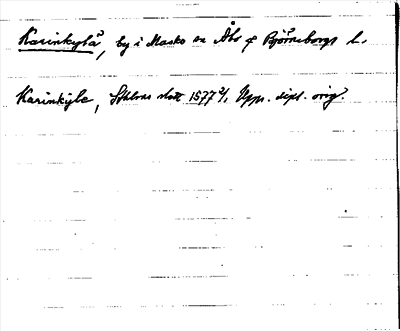 Karinkylä, by i Masko sn Åbo o Björneborgs l.
Karinkyle, Sthlms slott 1577 2/1 Upps. dipl. orig.